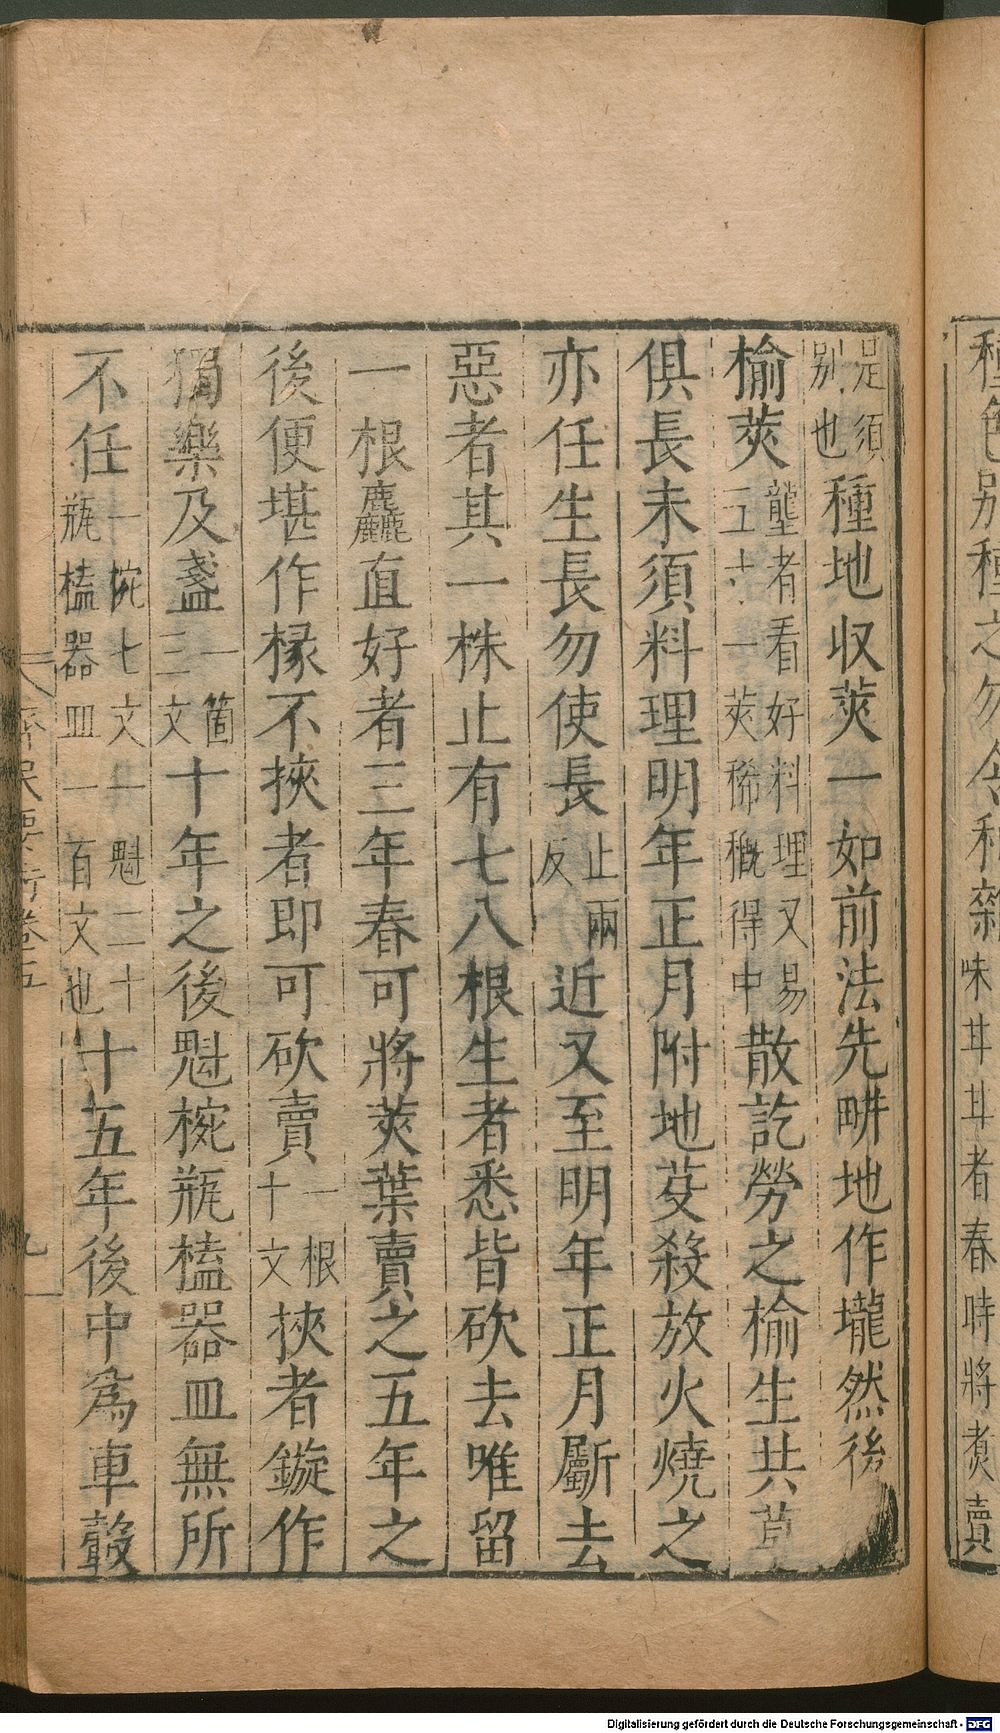 種色别種之勿令和雜味甘甘者春時將煮賣
是須别也種地收莢一如前法先畊地作壠然後
榆莢壟者看好料理又易五寸一莢稀穊得中散訖勞之榆生共草
俱長未須料理明年正月附地芟殺放火燒之
亦任生長勿使長止兩反近又至明年正月斸去
惡者其一株止有七八根生者悉皆砍去唯留
一根麤直好者三年春可將莢葉賣之五年之
後便堪作椽不挾者即可砍賣一根十文挾者鏇作
獨樂及盞一箇三文十年之後魁椀瓶榼器皿無所
不任一椀七文一魁二十瓶榼器皿一百文也十五年後中為車轂
齊民要術卷五
九
Digitalisierung gefördert durch die Deutsche Forschungsgemeinschaft - DFG